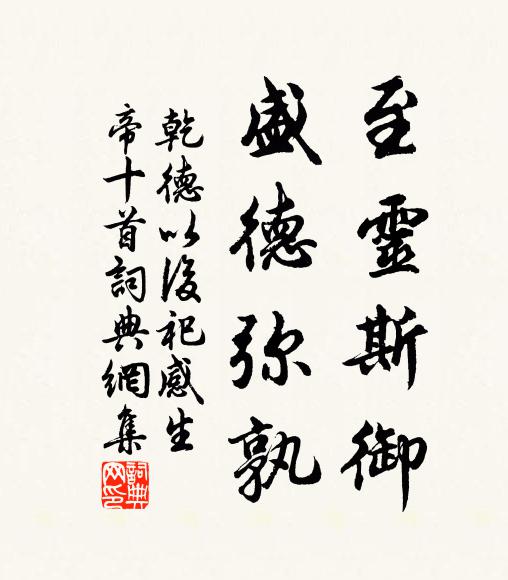 至靈斯御
盛德弥孰
乾德以後祀感生
帝十首詞典網集
詞典
网印